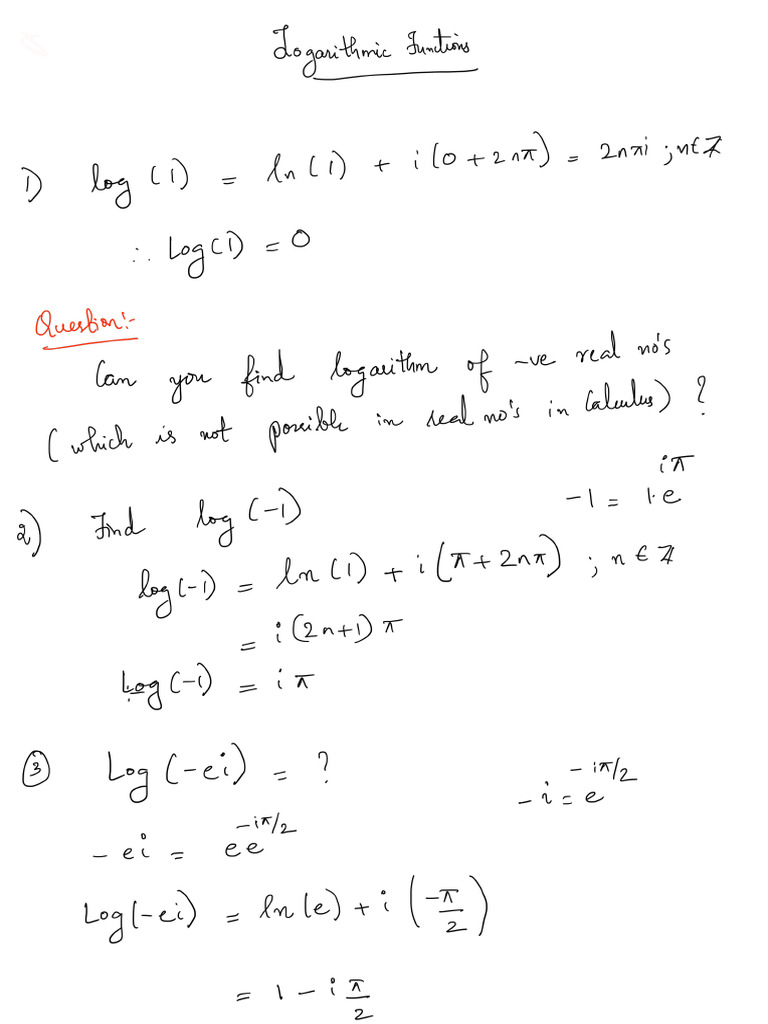 Logarithmic Functions
1) log (1) = ln (1) + i (0 + 2nπ) = 2nπi ; n ∈ Z
∴ Log(1) = 0
Question:-
Can you find logarithm of -ve real no's
(which is not possible in real no's in Calculus) ?
-1 = 1.e^{iπ}
2) Find log (-1)
log(-1) = ln (1) + i (π + 2nπ) ; n ∈ Z
= i (2n+1) π
Log (-1) = iπ
③ Log (-ei) = ?
-i = e^{-iπ/2}
-ei = ee^{-iπ/2}
Log(-ei) = ln(e) + i (-π/2)
= 1 - i π/2